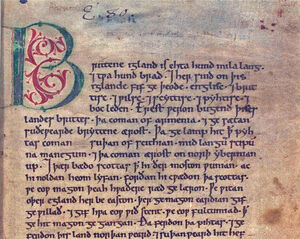 Brittene igland is ehta hund mila lang.
⁊ tƿa hund brad. ⁊ her sind on þis
iglande fif geþeode. englisc. ⁊ brit
tisc. ⁊ ƿilsc. ⁊ scyttisc. ⁊ pyhtisc. ⁊
boc leden. Erest ƿeron bugend þises
landes brittes. þa coman of armenia. ⁊ gesætan
suðeƿearde bryttene ærost. Þa gelamp hit ꝥ pyh
tas coman suþan of scithian. mid langum scipum
na manegum. ⁊ þa coman ærost on norþ ybernian
up. ⁊ þær bædo scottas ꝥ hi ðer moston ƿunian. ac
hi noldan heom lyfan. forðan hi cƿædon þa scottas.
ƿe eoƿ magon þeah hƿaðere ræd gelæron. Ƿe ƿitan
oþer egland her be easton. þer ge magon eardian gif
ge ƿillað. ⁊ gif hƿa eoƿ ƿiðstent. ƿe eoƿ fultumiað. ꝥ
ge hit magon gegangan. Ða ferdon þa pihtas. ⁊ ge
ferdon þis land norþanƿeard. ⁊ suþanƿeard hit hef